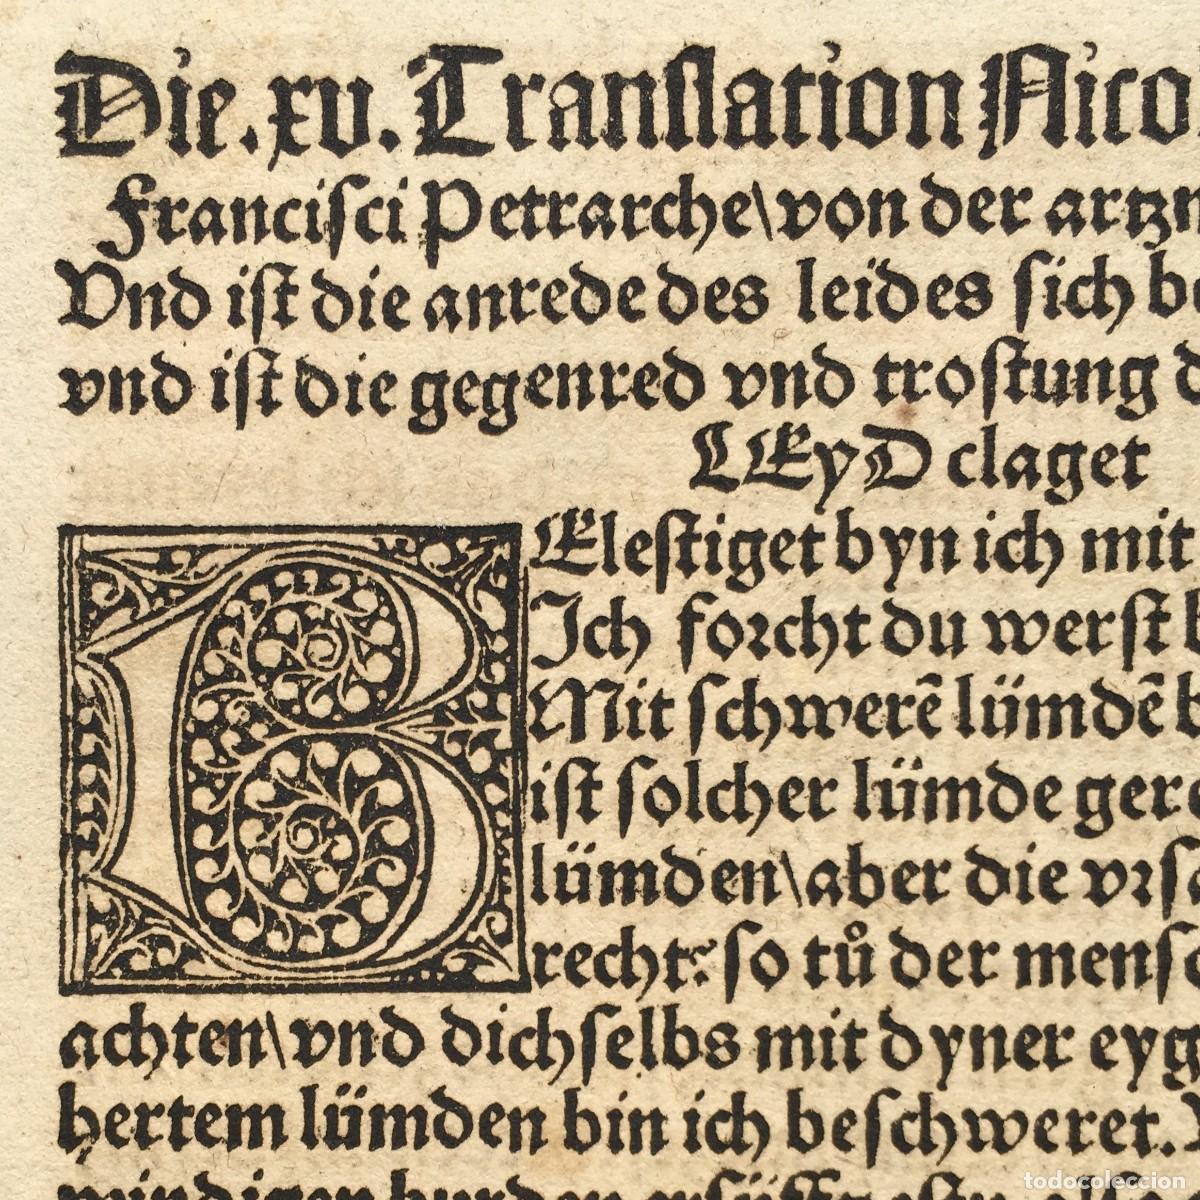 Die.xv.Translation Nico
Franciſci Petrarche\von der artzn
Vnd iſt die anrede des leides ſich b
vnd iſt die gegenred vnd troſtung d
LEyD claget
BEleſtiget byn ich mit
Ich forcht du werſt
Mit ſchwerē lümdē b
iſt ſolcher lümde ger
lümden\aber die vrſa
recht: ſo tuͦ der menſc
achten\vnd dichſelbs mit dyner eyg
hertem lümden bin ich beſchweret.
todocoleccion